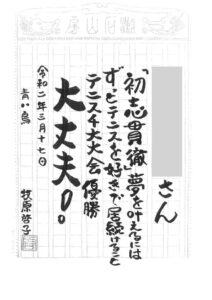 さん
「初志貫徹 夢を叶えるには
ずっとテニスを好きで居続けること
テニス4大大会優勝
大丈夫。
令和二年三月十七日
青い鳥